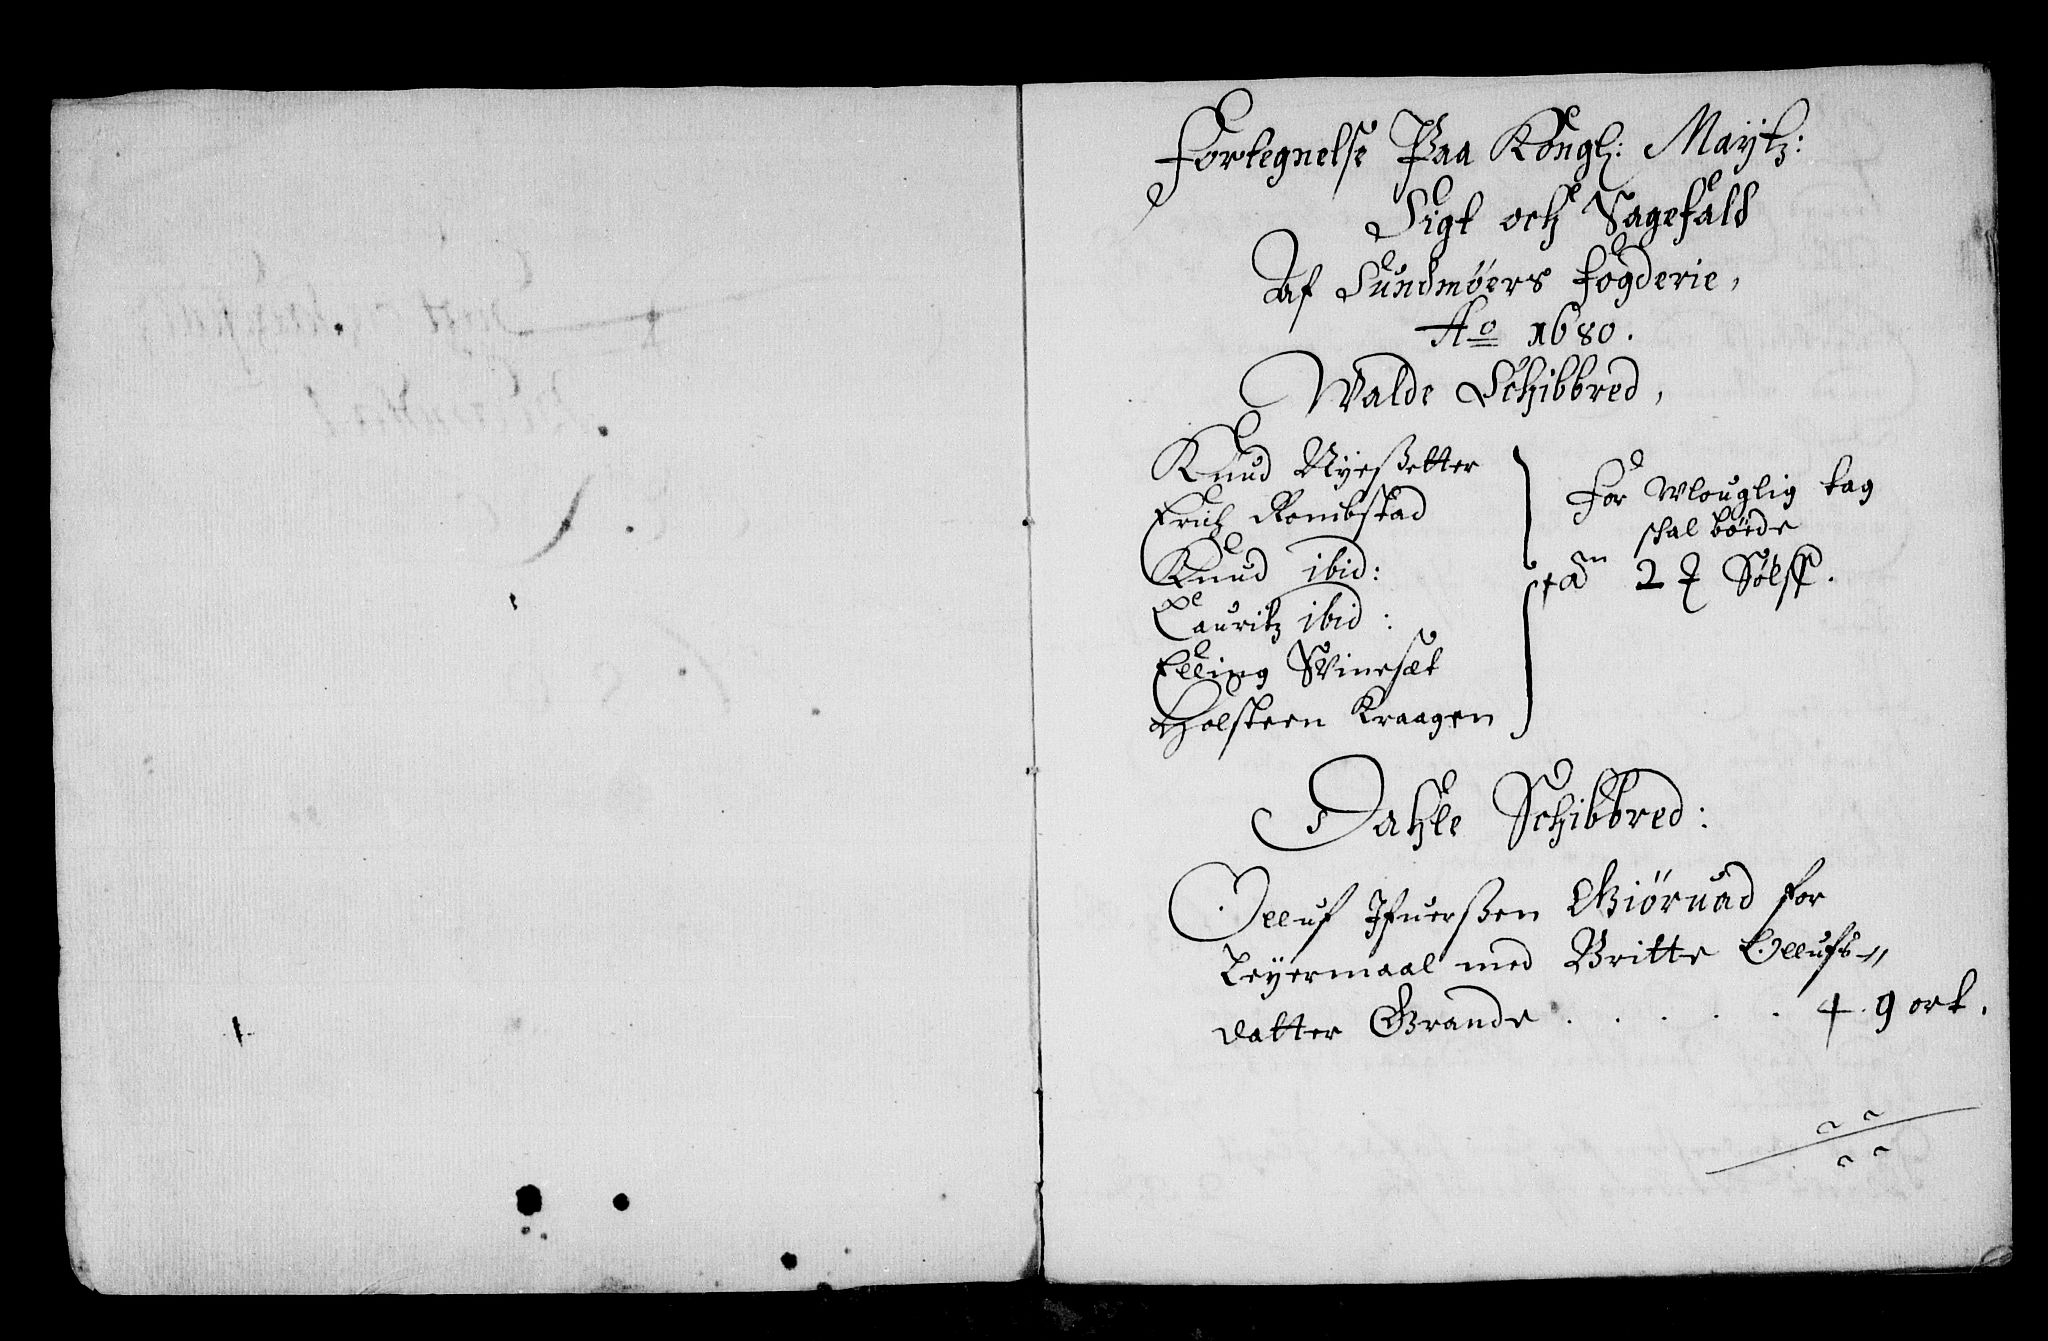 Fortegnelse Paa Kongl: Maytz:
Sigt och Sagefald
Af Sundmöers fogderie,
Ao 1680.
Walde Schibbred,
Knud Nyeßetter
Erich Rombstad
Knud ibid:
Lauritz ibid:
Elling Svinesæt
Holsteen Kraagen
For Wlouglig tag
schal böede
2 Sölff.
Dahle Schibbred:
Olluf Ifuerßen Giöruad for
Leyermaal med Britte Ollufs=
datter Grande . . . . . 4. 9 ort.